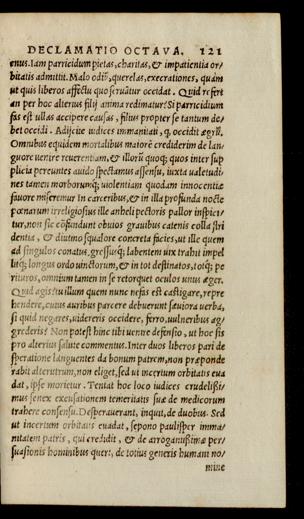 DECLAMATIO OCTAVA. 121
enus. Iam parricidum pietas, charitas, & impatientia or/
bitatis admittit. Malo odiū, querelas, execrationes, quàm
ut quis liberos affectu quo seruatur occidat. Quid refert
an per hoc alterius filij anima redimatur? Si parricidium
fas est ullas accipere causas, filius propter se tantum de/
bet occidi. Adijcite iudices immanitati, q̃ occidit ægrū.
Omnibus equidem mortalibus maiorē crediderim de lan/
guore uenire reuerentiam, & illorū quoq; quos inter sup
plicia pereuntes auido spectamus assensu, iuxta ualetudi=
nes tamen morborumq; uiolentiam quodam innocentiæ
fauore miseremur. In carceribus, & in illa profunda nocte
pœnarum irreligiosius ille anheli pectoris pallor inspici/
tur, non sic cōfundunt obuios grauibus catenis colla stri
dentia, & diutino squalore concreta facies, ut ille quem
ad singulos conatus, gressusq; labentem uix trahit impel
litq; longus ordo uinctorum, & in tot destinatos, totq; pe
rituros, omnium tamen in se retorquet oculos unus æger.
Quid agis? tu illum quem nunc nefas est castigare, repre
hendere, cuius auribus parcere debuerunt sæuiora uerba,
si quid negares, uidereris occidere, ferro, uulneribus ag=
grederis? Non potest hinc tibi uenire defensio, ut hoc sis
pro alterius salute commentus. Inter duos liberos pari de
speratione languentes da bonum patrem, non præponde
rabit alterutrum, non eliget, sed ut incertum orbitatis eua
dat, ipse morietur. Tentat hoc loco iudices crudelissi=
mus senex excusationem temeritatis suæ de medicorum
trahere consensu. Desperauerant, inquit, de duobus. Sed
ut incertum orbitatis euadat, sepono paulisper imma/
nitatem patris, qui credidit, & de arrogantissimæ per/
suasionis hominibus queri, de totius generis humani no/
mine